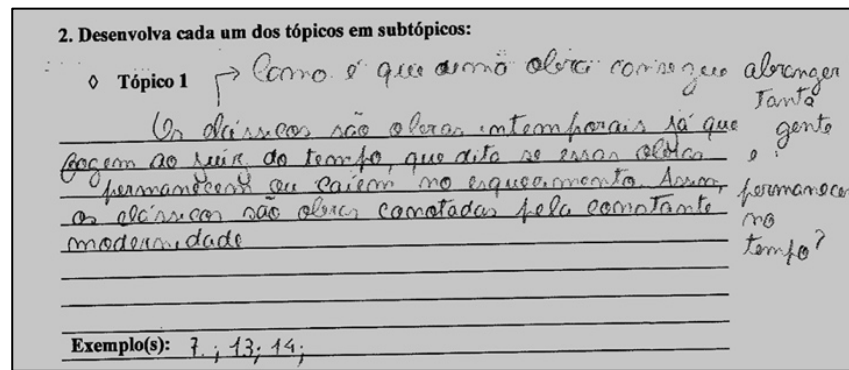 2. Desenvolva cada um dos tópicos em subtópicos:
◊ Tópico 1 → Como é que uma obra consegue abranger
tanta
gente
e
permanecer
no
tempo?
Os clássicos são obras intemporais já que
fogem ao juiz do tempo, que dita se essas obras
permanecem ou caiem no esquecimento. Assim,
os clássicos são obras conotadas pela constante
modernidade
Exemplo(s): 7.; 13; 14;